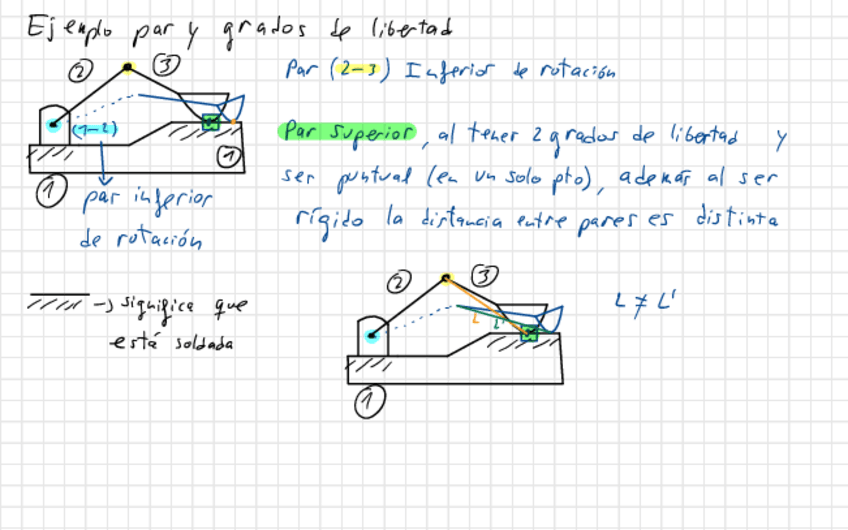 Ejemplo par y grados de libertad
② ③
(1-2)
①
①
par inferior
de rotación
Par (2-3) Inferior de rotación
Par superior, al tener 2 grados de libertad y
ser puntual (en un solo pto), además al ser
rígido la distancia entre pares es distinta
-> significa que
está soldada
② ③
L L'
①
L ≠ L'